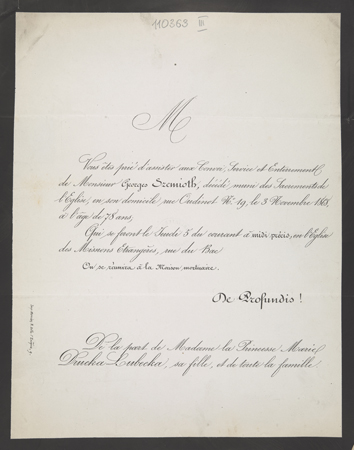 110863 III
M
Vous êtes prié d'assister aux Convoi, Service et Enterrement
de Monsieur Georges Szemioth, décédé muni des Sacrements de
l'Eglise, en son domicile, rue Cardinet No 19, le 3 Novembre 1868,
à l'âge de 78 ans,
Qui se feront le Jeudi 5 du courant à midi précis, en l'Eglise
des Missions Etrangères, rue du Bac
On se réunira à la Maison mortuaire.
De Profundis!
De la part de Madame la Princesse Marie
Drucka Lubecka, sa fille, et de toute la famille